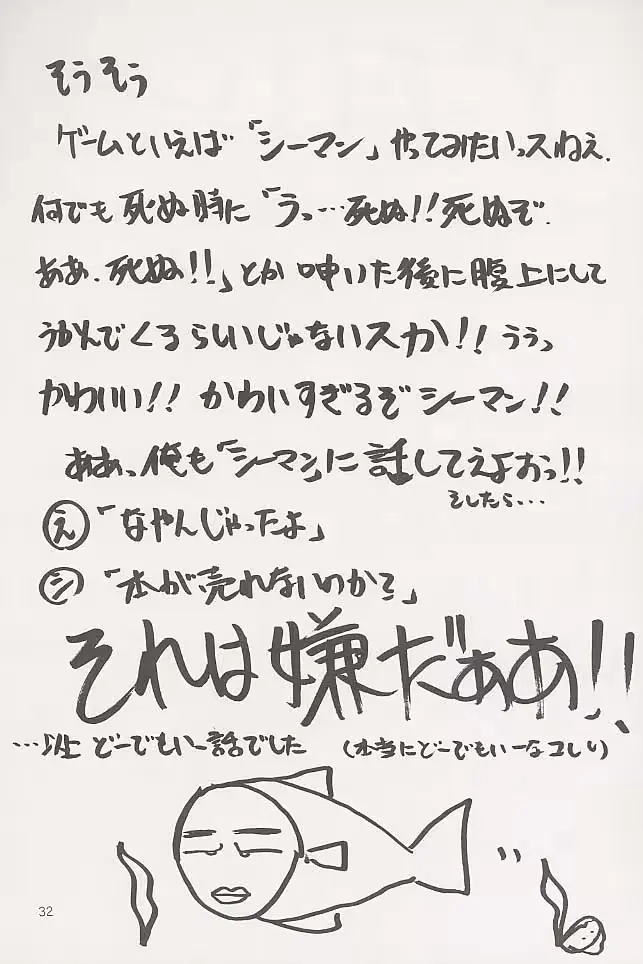 そうそう
ゲームといえば「シーマン」やってみたいっスねぇ.
何でも死ぬ時に「うっ…死ぬ!!死ぬぞ.
ああ.死ぬ!!」とか呻いた後に腹上にして
うかんでくるらしいじゃないスか!! ううっ
かわいい!! かわいすぎるぞシーマン!!
ああっ、俺も「シーマン」に話してえよおっ!!
そしたら…
え「なやんじゃったよ」
シ「本が売れないのか?」
それは嫌だぁあ!!
…以上 どーでもいー話でした (本当にどーでもいーなコレ!)
32